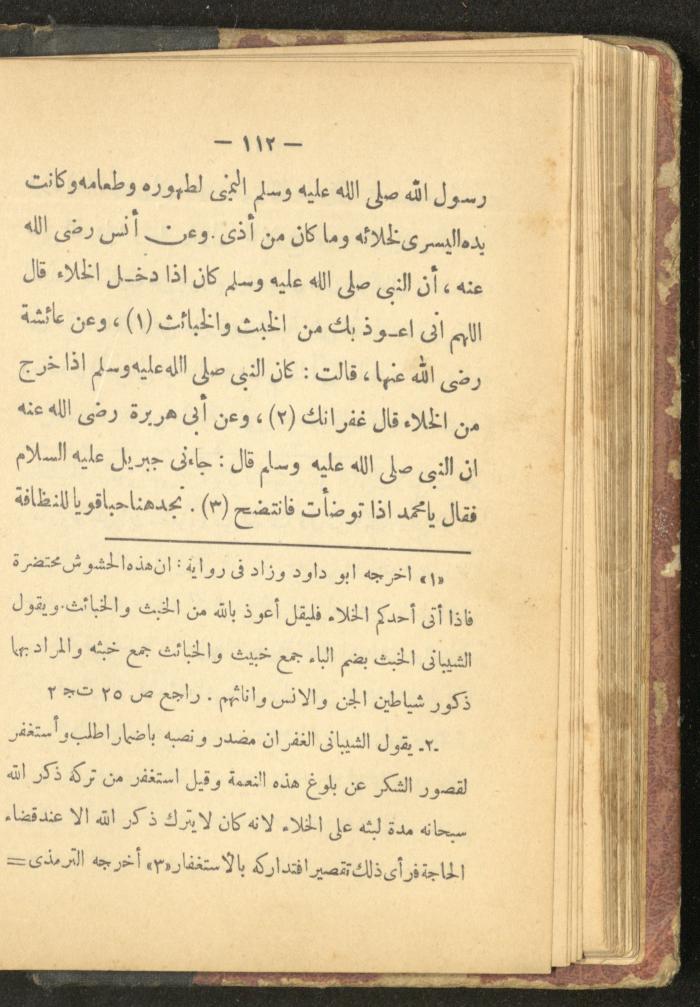 — ١١٢ —
رسول الله صلى الله عليه وسلم اليمنى لطهوره وطعامه وكانت
يده اليسرى لخلائه وما كان من أذى . وعن أنس رضى الله
عنه ، أن النبى صلى الله عليه وسلم كان اذا دخل الخلاء قال
اللهم انى اعوذ بك من الخبث والخبائث (١) ، وعن عائشة
رضى الله عنها ، قالت : كان النبى صلى الله عليه وسلم اذا خرج
من الخلاء قال غفرانك (٢) ، وعن أبى هريرة رضى الله عنه
ان النبى صلى الله عليه وسلم قال : جاءنى جبريل عليه السلام
فقال يا محمد اذا توضأت فانتضح (٣) . تجد هنا حبا قويا للنظافة
«١» اخرجه ابو داود وزاد فى رواية : ان هذه الحشوش محتضرة
فاذا أتى أحدكم الخلاء فليقل أعوذ بالله من الخبث والخبائث . ويقول
الشيبانى الخبث بضم الباء جمع خبيث والخبائث جمع خبثه والمراد بها
ذكور شياطين الجن والانس واناثهم . راجع ص ٢٥ ت ج ٢
ـ٢ـ يقول الشيبانى الغفران مصدر ونصبه باضمار اطلب وأستغفر
لقصور الشكر عن بلوغ هذه النعمة وقيل استغفر من تركه ذكر الله
سبحانه مدة لبثه على الخلاء لانه كان لا يترك ذكر الله الا عند قضاء
الحاجة فرأى ذلك تقصيرا فتداركه بالاستغفار «٣» أخرجه الترمذى =